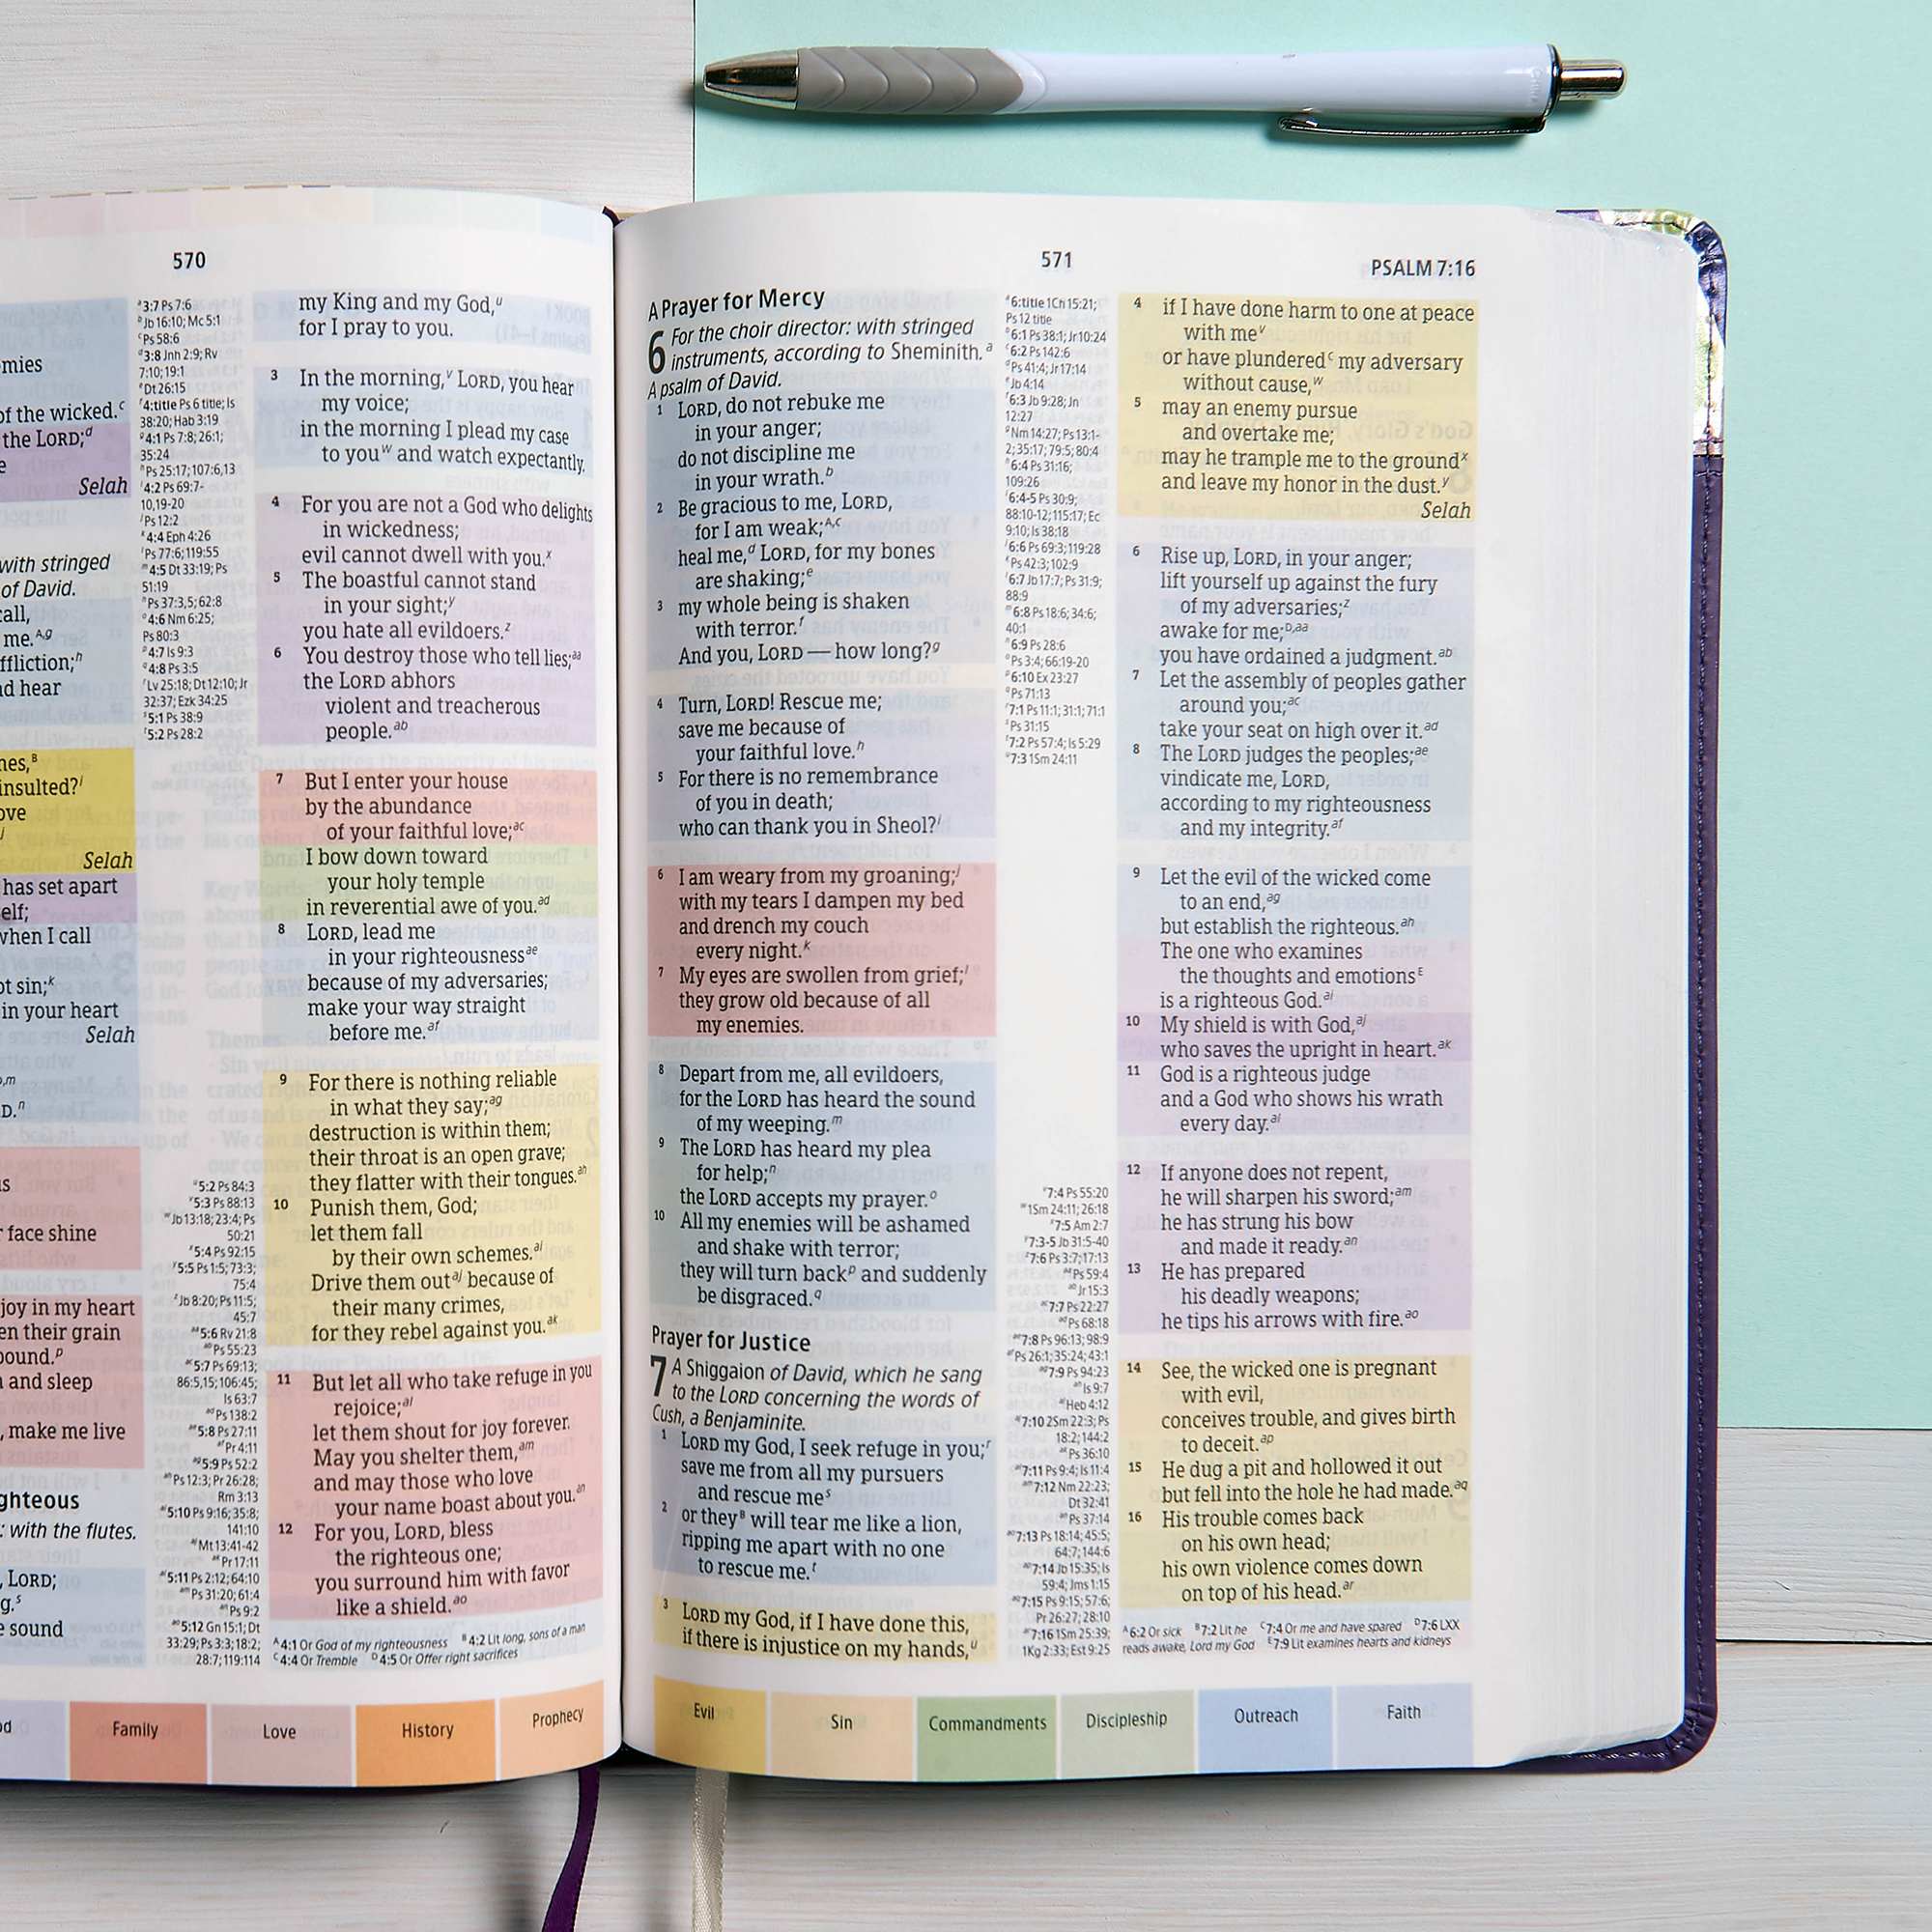 570
emies
of the wicked.ᶜ
the LORD;ᵈ
Selah
with stringed
of David.
call,
me.ᴬ,ᵍ
ffliction;ʰ
nd hear
nes,ᴮ
insulted?ⁱ
ove
Selah
has set apart
self;
when I call
ot sin;ᵏ
in your heart
Selah
D.ⁿ
us
r face shine
joy in my heart
en their grain
bound.ᵖ
n and sleep
, make me live
ghteous
: with the flutes.
, LORD;
g.ˢ
e sound
ᵃ3:7 Ps 7:6
ᵇJb 16:10; Mc 5:1
ᶜPs 58:6
ᵈ3:8 Jnh 2:9; Rv
7:10; 19:1
ᵉDt 26:15
ᶠ4:title Ps 6 title; Is
38:20; Hab 3:19
ᵍ4:1 Ps 7:8; 26:1;
35:24
ʰPs 25:17; 107:6,13
ⁱ4:2 Ps 69:7-
10,19-20
ʲPs 12:2
ᵏ4:4 Eph 4:26
ˡPs 77:6; 119:55
ᵐ4:5 Dt 33:19; Ps
51:19
ⁿPs 37:3,5; 62:8
ᵒ4:6 Nm 6:25;
Ps 80:3
ᵖ4:7 Is 9:3
ᑫ4:8 Ps 3:5
ʳLv 25:18; Dt 12:10; Jr
32:37; Ezk 34:25
ˢ5:1 Ps 38:9
ᵗ5:2 Ps 28:2
ᵘ5:2 Ps 84:3
ᵛ5:3 Ps 88:13
ʷJb 13:18; 23:4; Ps
50:21
ˣ5:4 Ps 92:15
ʸ5:5 Ps 1:5; 73:3;
75:4
ᶻJb 8:20; Ps 11:5;
45:7
ᵃᵃ5:6 Rv 21:8
ᵃᵇPs 55:23
ᵃᶜ5:7 Ps 69:13;
86:5,15; 106:45;
Is 63:7
ᵃᵈPs 138:2
ᵃᵉ5:8 Ps 27:11
ᵃᶠPr 4:11
ᵃᵍ5:9 Ps 52:2
ᵃʰPs 12:3; Pr 26:28;
Rm 3:13
ᵃⁱ5:10 Ps 9:16; 35:8;
141:10
ᵃʲMt 13:41-42
ᵃᵏPr 17:11
ᵃˡ5:11 Ps 2:12; 64:10
ᵃᵐPs 31:20; 61:4
ᵃⁿPs 9:2
ᵃᵒ5:12 Gn 15:1; Dt
33:29; Ps 3:3; 18:2;
28:7; 119:114
my King and my God,ᵘ
for I pray to you.
3 In the morning,ᵛ LORD, you hear
my voice;
in the morning I plead my case
to youʷ and watch expectantly.
4 For you are not a God who delights
in wickedness;
evil cannot dwell with you.ˣ
5 The boastful cannot stand
in your sight;ʸ
you hate all evildoers.ᶻ
6 You destroy those who tell lies;ᵃᵃ
the LORD abhors
violent and treacherous
people.ᵃᵇ
7 But I enter your house
by the abundance
of your faithful love;ᵃᶜ
I bow down toward
your holy temple
in reverential awe of you.ᵃᵈ
8 LORD, lead me
in your righteousnessᵃᵉ
because of my adversaries;
make your way straight
before me.ᵃᶠ
9 For there is nothing reliable
in what they say;ᵃᵍ
destruction is within them;
their throat is an open grave;
they flatter with their tongues.ᵃʰ
10 Punish them, God;
let them fall
by their own schemes.ᵃⁱ
Drive them outᵃʲ because of
their many crimes,
for they rebel against you.ᵃᵏ
11 But let all who take refuge in you
rejoice;ᵃˡ
let them shout for joy forever.
May you shelter them,ᵃᵐ
and may those who love
your name boast about you.ᵃⁿ
12 For you, LORD, bless
the righteous one;
you surround him with favor
like a shield.ᵃᵒ
ᴬ4:1 Or God of my righteousness ᴮ4:2 Lit long, sons of a man
ᶜ4:4 Or Tremble ᴰ4:5 Or Offer right sacrifices
Family Love History Prophecy
571
PSALM 7:16
A Prayer for Mercy
6 For the choir director: with stringed
instruments, according to Sheminith.ᵃ
A psalm of David.
1 LORD, do not rebuke me
in your anger;
do not discipline me
in your wrath.ᵇ
2 Be gracious to me, LORD,
for I am weak;ᴬ,ᶜ
heal me,ᵈ LORD, for my bones
are shaking;ᵉ
3 my whole being is shaken
with terror.ᶠ
And you, LORD — how long?ᵍ
4 Turn, LORD! Rescue me;
save me because of
your faithful love.ʰ
5 For there is no remembrance
of you in death;
who can thank you in Sheol?ⁱ
6 I am weary from my groaning;ʲ
with my tears I dampen my bed
and drench my couch
every night.ᵏ
7 My eyes are swollen from grief;ˡ
they grow old because of all
my enemies.
8 Depart from me, all evildoers,
for the LORD has heard the sound
of my weeping.ᵐ
9 The LORD has heard my plea
for help;ⁿ
the LORD accepts my prayer.ᵒ
10 All my enemies will be ashamed
and shake with terror;
they will turn backᵖ and suddenly
be disgraced.ᑫ
Prayer for Justice
7 A Shiggaion of David, which he sang
to the LORD concerning the words of
Cush, a Benjaminite.
1 LORD my God, I seek refuge in you;ʳ
save me from all my pursuers
and rescue meˢ
2 or theyᴮ will tear me like a lion,
ripping me apart with no one
to rescue me.ᵗ
3 LORD my God, if I have done this,
if there is injustice on my hands,ᵘ
ᵃ6:title 1Ch 15:21;
Ps 12 title
ᵇ6:1 Ps 38:1; Jr 10:24
ᶜ6:2 Ps 142:6
ᵈPs 41:4; Jr 17:14
ᵉJb 4:14
ᶠ6:3 Jb 9:28; Jn
12:27
ᵍNm 14:27; Ps 13:1-
2; 35:17; 79:5; 80:4
ʰ6:4 Ps 31:16;
109:26
ⁱ6:4-5 Ps 30:9;
88:10-12; 115:17; Ec
9:10; Is 38:18
ʲ6:6 Ps 69:3; 119:28
ᵏPs 42:3; 102:9
ˡ6:7 Jb 17:7; Ps 31:9;
88:9
ᵐ6:8 Ps 18:6; 34:6;
40:1
ⁿ6:9 Ps 28:6
ᵒPs 3:4; 66:19-20
ᵖ6:10 Ex 23:27
ᑫPs 71:13
ʳ7:1 Ps 11:1; 31:1; 71:1
ˢPs 31:15
ᵗ7:2 Ps 57:4; Is 5:29
ᵘ7:3 1Sm 24:11
ᵛ7:4 Ps 55:20
ʷ1Sm 24:11; 26:18
ˣ7:5 Am 2:7
ʸ7:3-5 Jb 31:5-40
ᶻ7:6 Ps 3:7; 17:13
ᵃᵃPs 59:4
ᵃᵇJr 15:3
ᵃᶜ7:7 Ps 22:27
ᵃᵈPs 68:18
ᵃᵉ7:8 Ps 96:13; 98:9
ᵃᶠPs 26:1; 35:24; 43:1
ᵃᵍ7:9 Ps 94:23
ᵃʰIs 9:7
ᵃⁱHeb 4:12
ᵃʲ7:10 2Sm 22:3; Ps
18:2; 144:2
ᵃᵏPs 36:10
ᵃˡ7:11 Ps 9:4; Is 11:4
ᵃᵐ7:12 Nm 22:23;
Dt 32:41
ᵃⁿPs 37:14
ᵃᵒ7:13 Ps 18:14; 45:5;
64:7; 144:6
ᵃᵖ7:14 Jb 15:35; Is
59:4; Jms 1:15
ᵃᑫ7:15 Ps 9:15; 57:6;
Pr 26:27; 28:10
ᵃʳ7:16 1Sm 25:39;
1Kg 2:33; Est 9:25
4 if I have done harm to one at peace
with meᵛ
or have plunderedᶜ my adversary
without cause,ʷ
5 may an enemy pursue
and overtake me;
may he trample me to the groundˣ
and leave my honor in the dust.ʸ
Selah
6 Rise up, LORD, in your anger;
lift yourself up against the fury
of my adversaries;ᶻ
awake for me;ᴰ,ᵃᵃ
you have ordained a judgment.ᵃᵇ
7 Let the assembly of peoples gather
around you;ᵃᶜ
take your seat on high over it.ᵃᵈ
8 The LORD judges the peoples;ᵃᵉ
vindicate me, LORD,
according to my righteousness
and my integrity.ᵃᶠ
9 Let the evil of the wicked come
to an end,ᵃᵍ
but establish the righteous.ᵃʰ
The one who examines
the thoughts and emotionsᴱ
is a righteous God.ᵃⁱ
10 My shield is with God,ᵃʲ
who saves the upright in heart.ᵃᵏ
11 God is a righteous judge
and a God who shows his wrath
every day.ᵃˡ
12 If anyone does not repent,
he will sharpen his sword;ᵃᵐ
he has strung his bow
and made it ready.ᵃⁿ
13 He has prepared
his deadly weapons;
he tips his arrows with fire.ᵃᵒ
14 See, the wicked one is pregnant
with evil,
conceives trouble, and gives birth
to deceit.ᵃᵖ
15 He dug a pit and hollowed it out
but fell into the hole he had made.ᵃᑫ
16 His trouble comes back
on his own head;
his own violence comes down
on top of his head.ᵃʳ
ᴬ6:2 Or sick ᴮ7:2 Lit he ᶜ7:4 Or me and have spared ᴰ7:6 LXX
reads awake, Lord my God ᴱ7:9 Lit examines hearts and kidneys
Evil Sin Commandments Discipleship Outreach Faith